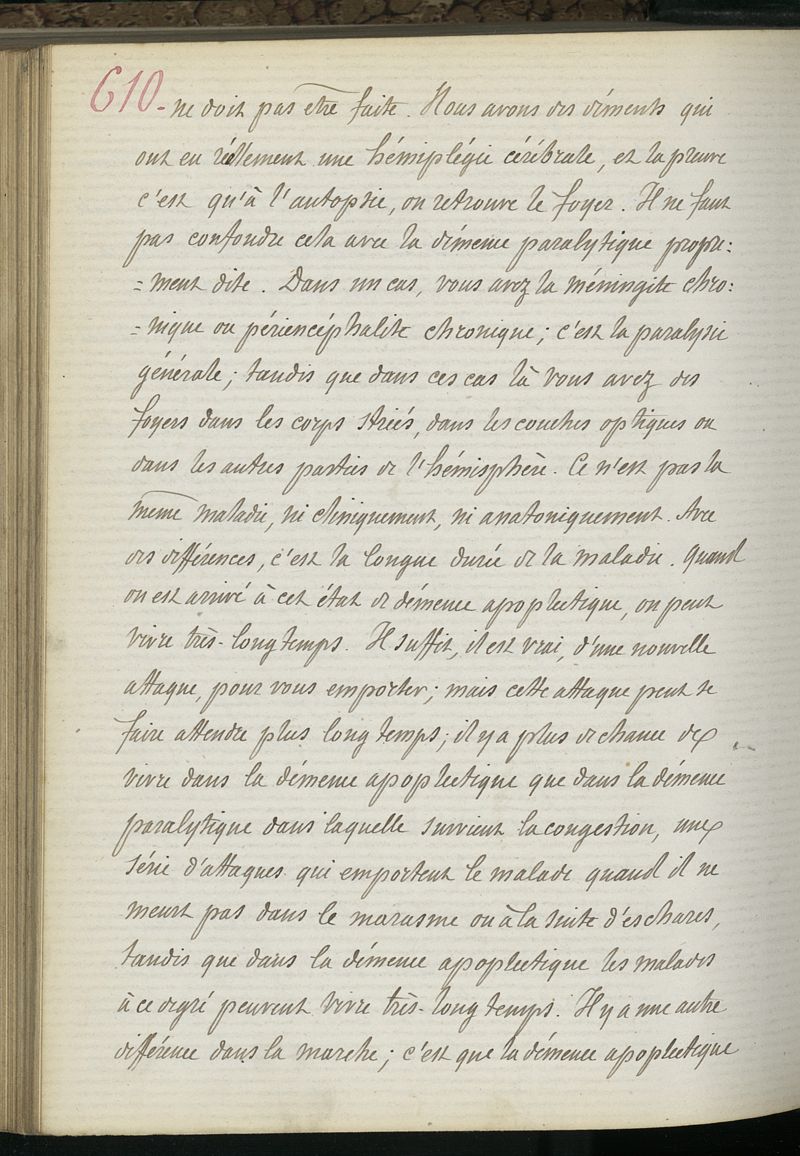 610. ne doit pas etre faite. Nous avons des déments qui
ont eu réellement une hémiplégie cérébrale, et la preuve
c'est qu'à l'autopsie, on retrouve le foyer. Il ne faut
pas confondre cela avec la démence paralytique propre:
= ment dite. Dans un cas, vous avez la méningite chro:
= nique ou périencéphalite chronique; c'est la paralysie
générale; tandis que dans ces cas là vous avez des
foyers dans les corps striés, dans les couches optiques ou
dans les autres parties de l'hémisphère. Ce n'est pas la
meme maladie, ni cliniquement, ni anatomiquement. Avec
des différences, c'est la longue durée de la maladie. Quand
on est arrivé à cet état de démence apoplectique, on peut
vivre très-longtemps. Il suffit, il est vrai, d'une nouvelle
attaque, pour vous emporter; mais cette attaque peut se
faire attendre plus longtemps; il y a plus de chance de
vivre dans la démence apoplectique que dans la démence
paralytique dans laquelle survient la congestion, une
série d'attaques qui emportent le malade quand il ne
meurt pas dans le marasme ou à la suite d'eschares,
tandis que dans la démence apoplectique les malades
à ce degré peuvent vivre très-longtemps. Il y a une autre
différence dans la marche; c'est que la démence apoplectique